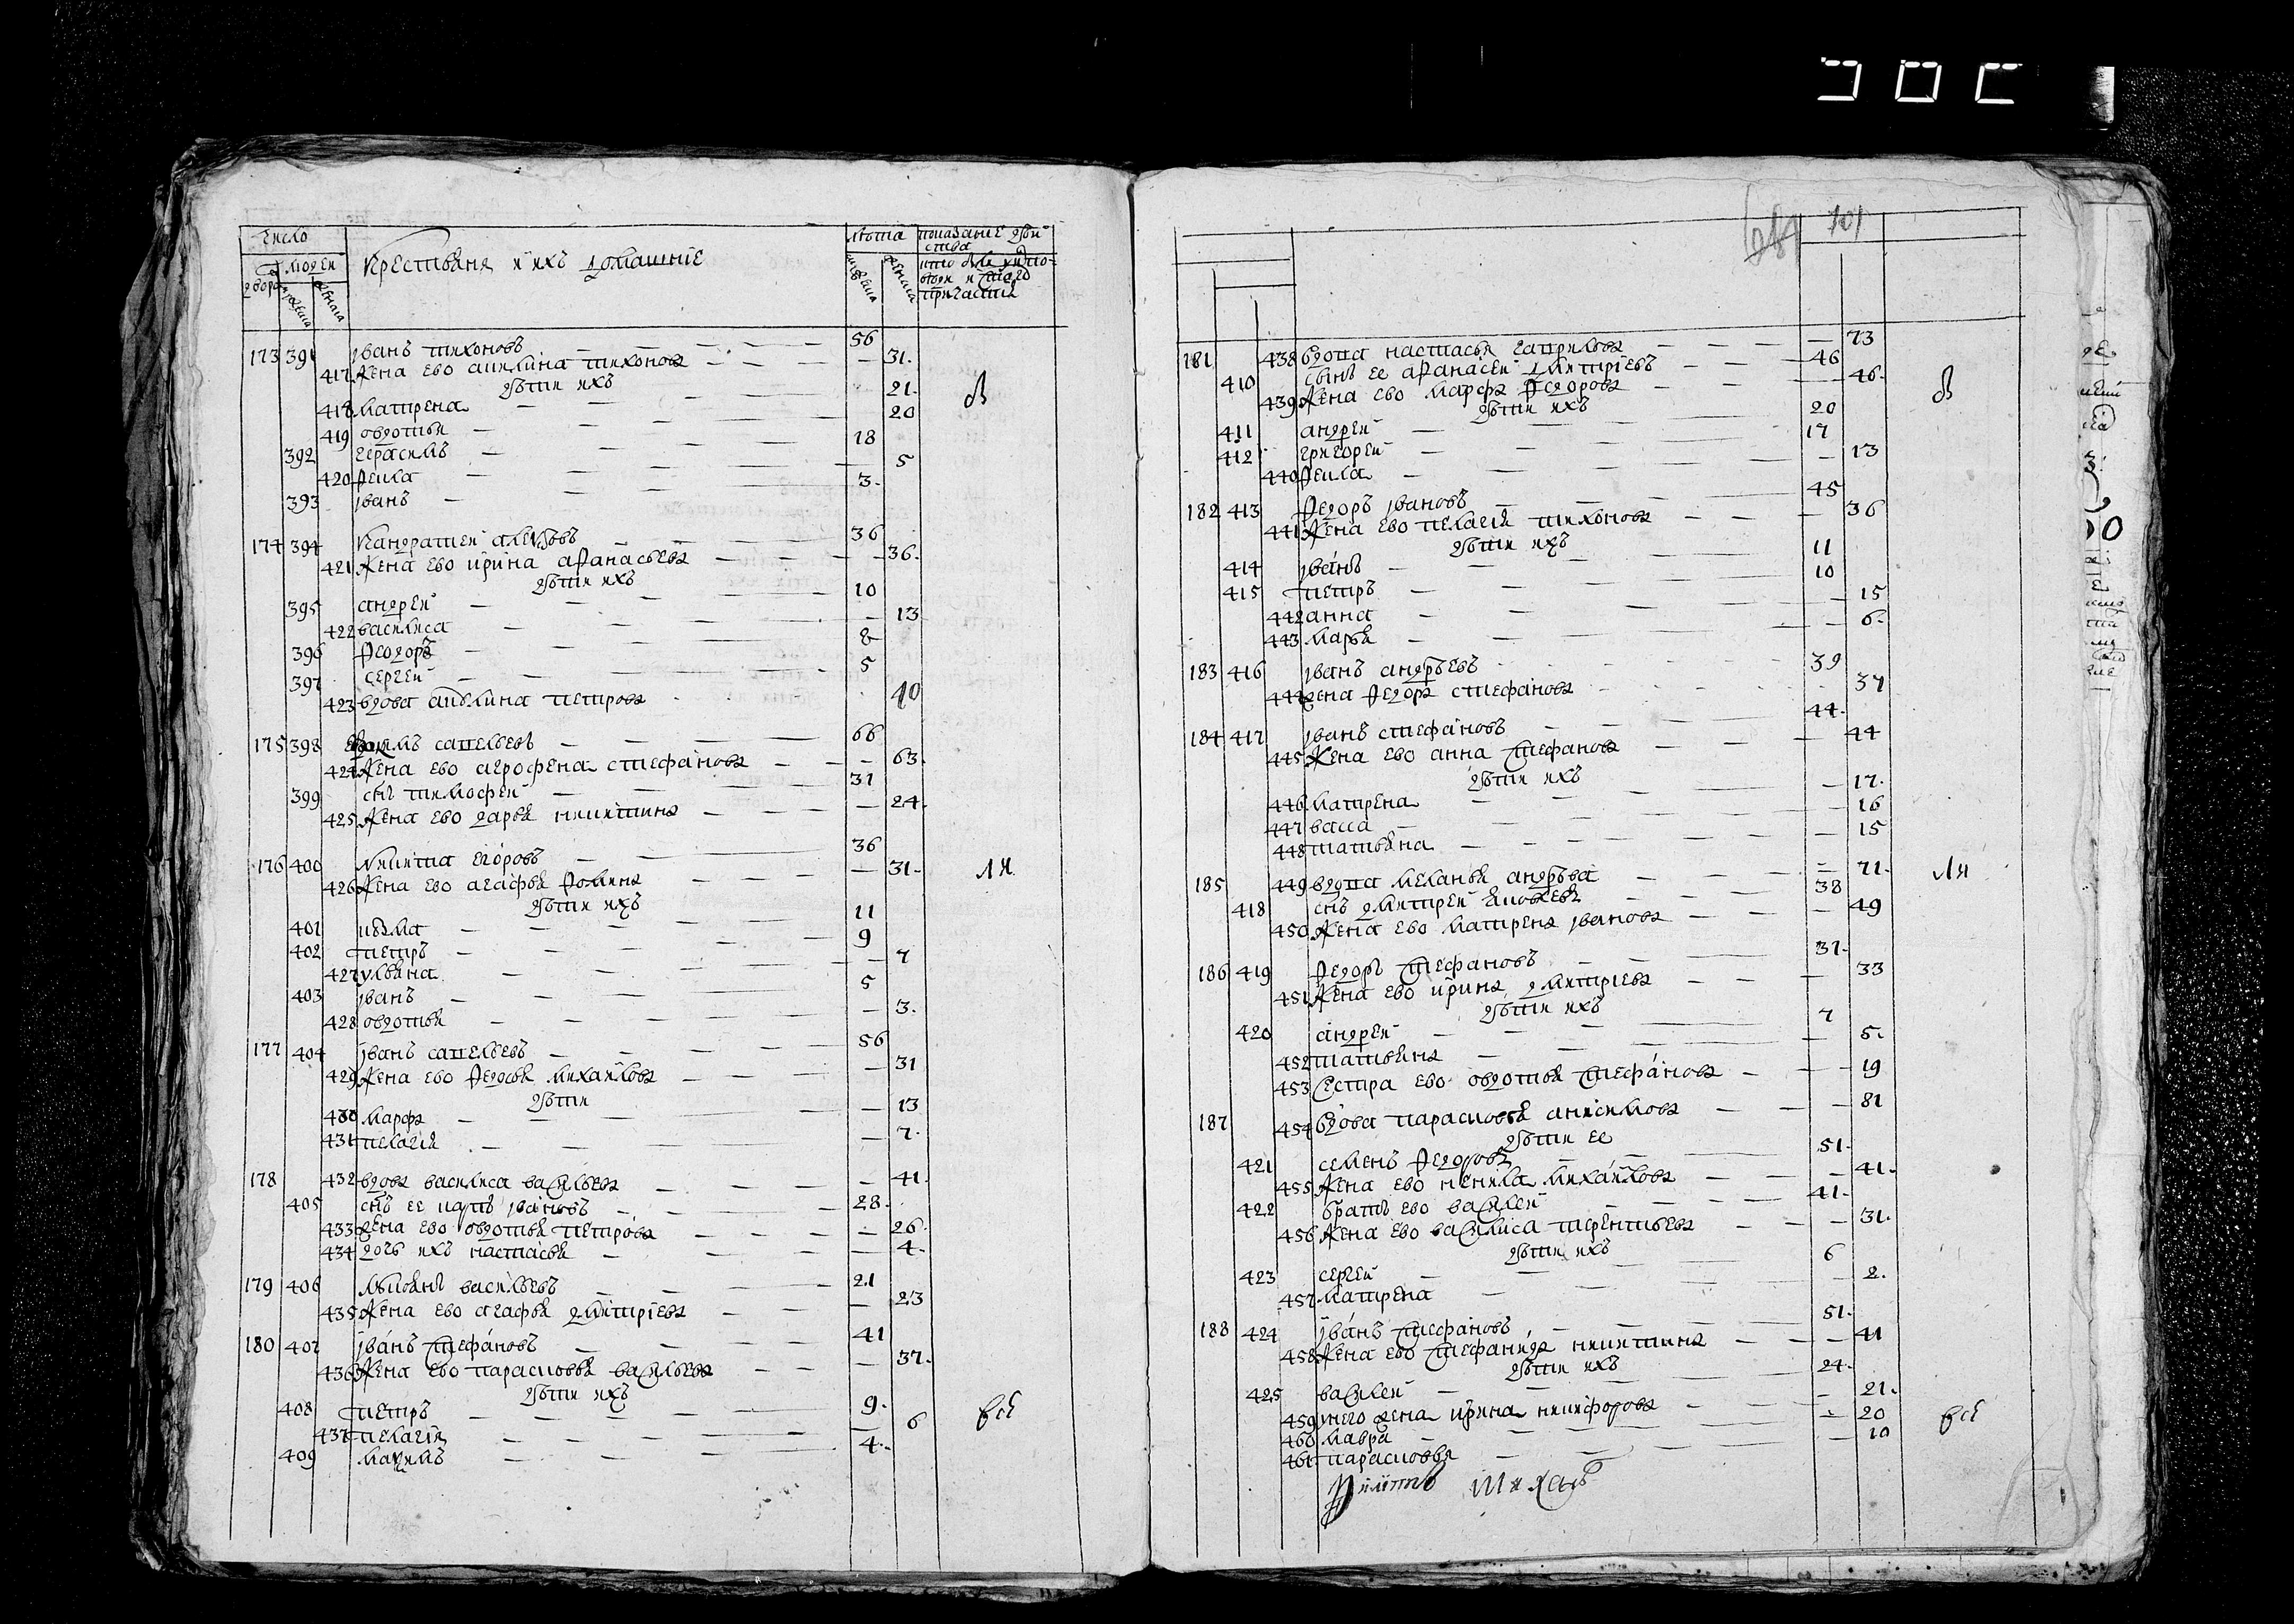 число
людей
двора
мужеска
женска
Крестьяня и ихъ домашніе
лѣта
мужска
женска
показание действа
кто былъ у исповеди и святаго причастия
173 391 Іванъ Тихоновъ — 56
417 Жена ево Акилина Тихонова — 31.
дѣти ихъ
418 Матрена — 21.
419 Овдотья — 20
392 Герасимъ — 18
420 Фекла — 5
393 Іванъ — 3.
174 394 Кандратей — 36
421 Жена ево Ирина Афанасьева — 36.
дѣти ихъ
395 Андрей — 10
422 Василиса — 13
396 Феодоръ — 8
397 Сергей — 5
423 вдова Акилина Петрова 40
175 398 Савельевъ — 66
424 Жена ево Агрофена Стефанова — 63.
399 снъ Тимофей — 31
425 Жена ево Дарья Никитина — 24.
176 400 Никита Егоровъ — 36
426 Жена ево Агафья Фомина — 31.
дѣти ихъ
401 Кузма — 11
402 Петръ — 9
427 Ульяна — 7
403 Іванъ — 5
428 Овдотья — 3.
177 404 Іванъ Савельевъ — 56
429 Жена ево Федосья Михайлова — 31
дѣти
430 Марфа — 13
431 Пелагія — 7.
178 432 вдова Василиса Васильева — 41.
405 снъ ее Карпъ Івановъ — 28.
433 Жена ево Овдотья Петрова — 26.
434 дочь ихъ Настасья — 4.
179 406 Васильевъ — 21
435 Жена ево Агафья Дмитріева — 23
180 407 Іванъ Стефановъ — 41
436 Жена ево Парасковья Васильева — 37.
дѣти ихъ
408 Петръ — 9.
437 Пелагія — 6
409 Мазимъ — 4.
101
181 438 вдова Настасья Гаврилова — 73
410 сынъ ее Афанасей Дмитріевъ — 46
439 Жена ево Марфа Федорова — 46.
дѣти ихъ
411 Андрей — 20
412 Григорей — 17
440 Фекла — 13
182 413 Федоръ Івановъ — 45
441 Жена ево Пелагія Тихонова — 36
дѣти ихъ
414 Іванъ — 11
415 Петръ — 10
442 Анна — 15
443 Марья — 6.
183 416 Іванъ Андрѣевъ — 39
444 Жена Федора Стефанова — 37
184 417 Іванъ Стефановъ — 44.
445 Жена ево Анна Стефанова — 44
дѣти ихъ
446 Матрена — 17.
447 Васса — 16
448 Татьяна — 15
185 449 вдова Меланья Андрѣва — 71.
418 снъ Дмитрей Яковлевъ — 38
450 Жена ево Матрена Іванова — 49
186 419 Федоръ Стефановъ — 37.
451 Жена ево Ирина Дмитріева — 33
дѣти ихъ
420 Андрей — 7
452 Татьяна — 5.
453 Сестра ево Овдотья Стефанова — 19
187 454 вдова Парасковья Анисимова — 81
дѣти ее
421 Семенъ Федоровъ — 51.
455 Жена ево Ненила Михайлова — 41.
422 братъ ево Василей — 41.
456 Жена ево Василиса Терентьева — 31.
дѣти ихъ
423 Сергей — 6
457 Матрена — 2.
188 424 Іванъ Стефановъ — 51.
458 Жена ево Стефанида Никитина — 41
дѣти ихъ
425 Василей — 24.
459 унего жена Ирина Никифорова — 21.
460 Мавра — 20
461 Парасковья — 10